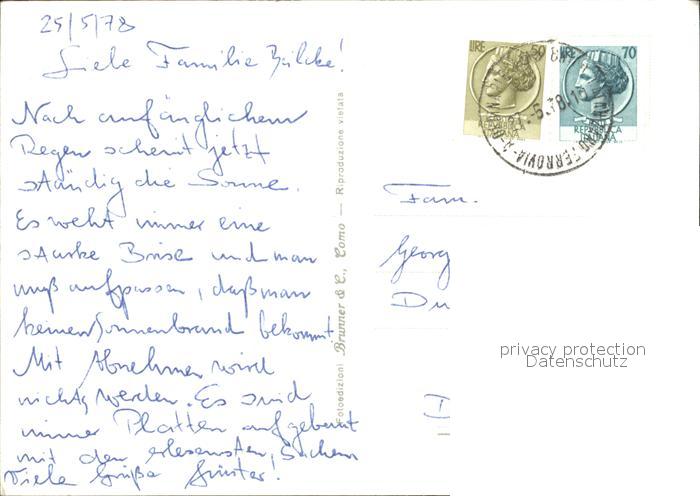 25/5/78
Liebe Familie
Nach anfänglichem
Regen scheint jetzt
ständig die Sonne.
Es weht immer eine
starke Brise und man
muß aufpassen, daß man
keinen Sonnenbrand bekommt.
Mit Abnehmen wird
nichts werden. Es sind
immer Platten aufgebaut
mit den erlesensten Sachen
Viele Grüße Günter!
Fotoedizioni Brunner & C., Como — Riproduzione vietata
LIRE 50
REPUBBLICA
ITALIANA
LIRE 70
REPUBBLICA
ITALIANA
FERROVIA
Fam.
Georg
Du
D
privacy protection
Datenschutz